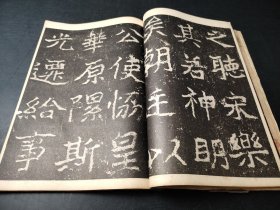 之聽宋樂
其若神明
矣朝廷以
公使協皇
華原隰斯
光遷給事